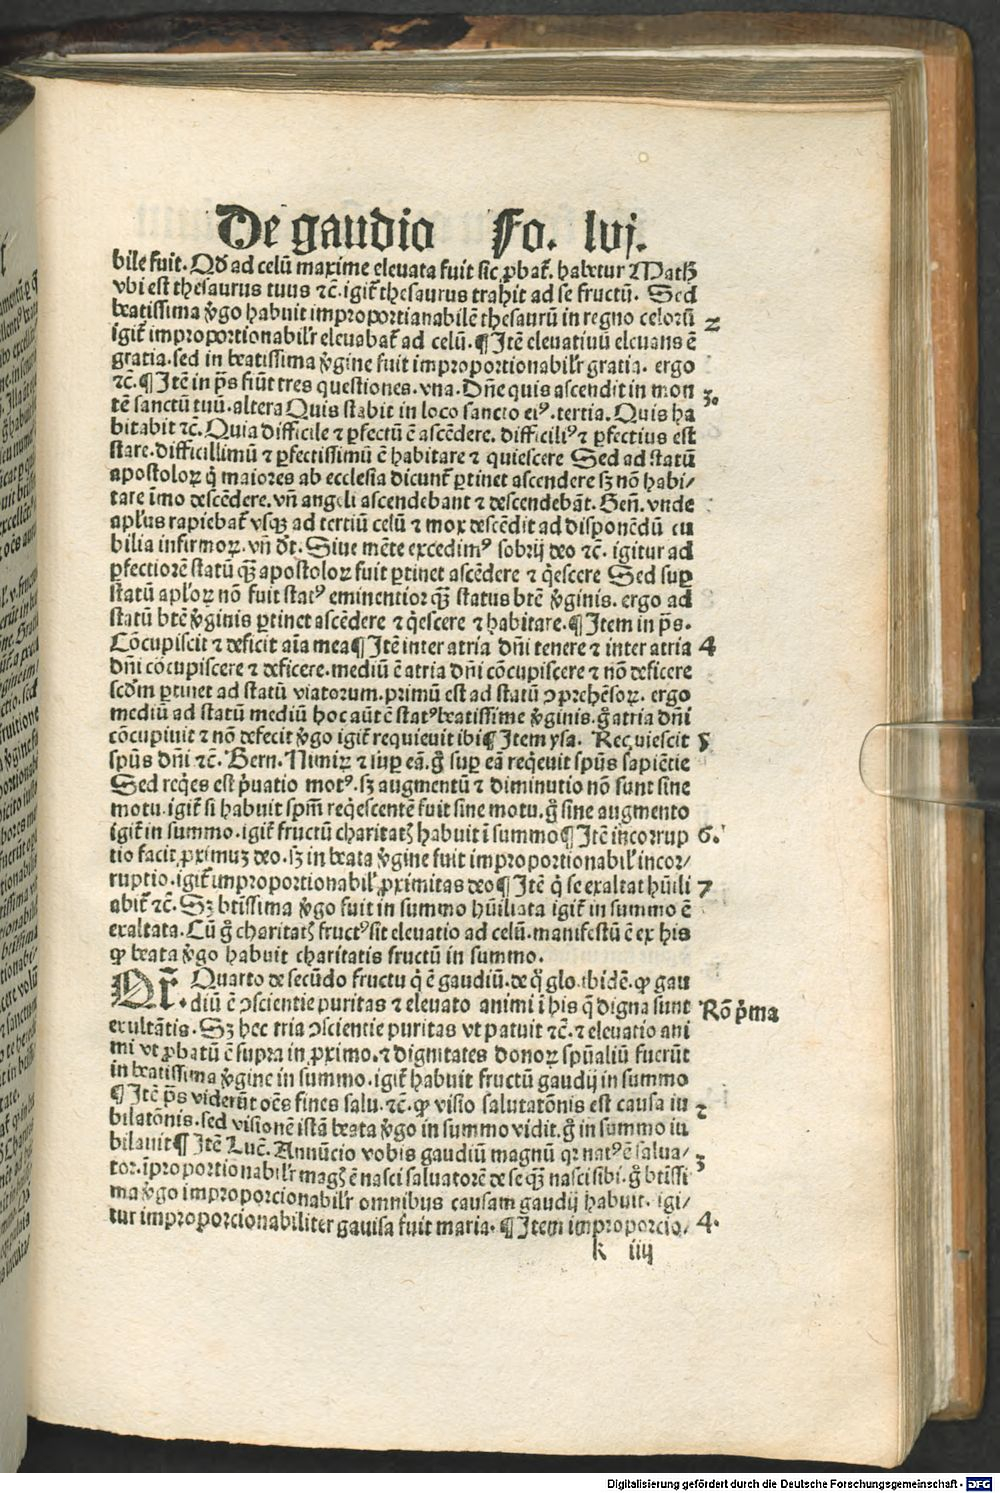 De gaudio Fo. lvj.
bile fuit. Qđ ad celū maxime eleuata fuit sic ꝓbat̃. habetur Math
vbi est thesaurus tuus ⁊c̃. igit̃ thesaurus trahit ad se fructū. Sed
beatissima v̾go habuit improportianabilē thesaurū in regno celorū 2
igit̃ improportionabilr̃ eleuabat̃ ad celū. ¶ Itē eleuatiuū eleuans ē
gratia. sed in beatissima v̾gine fuit improportionabilr̃ gratia. ergo
⁊c̃. ¶ Itē in p̄s fiūt tres questiones. vna. Dn̄e quis ascendit in mon 3.
tē sanctū tuū. altera Quis stabit in loco sancto eiꝰ. tertia. Quis ha
bitabit ⁊c̃. Quia difficile ⁊ ꝑfectū ē ascēdere. difficiliꝰ ⁊ ꝑfectius est
stare. difficillimū ⁊ ꝑfectissimū ē habitare ⁊ quiescere Sed ad statū
apostoloꝝ q̇ maiores ab ecclesia dicunt̃ ꝑtinet ascendere sꝫ nō habi/
tare īmo descēdere. vn̄ angeli ascendebant ⁊ descendebāt. Gen̄. vnde
apl̃us rapiebat̃ vsqꝫ ad tertiū celū ⁊ mox descēdit ad disponēdū cu
bilia infirmoꝝ. vn̄ dr̃. Siue mēte excedimꝰ sobrij deo ⁊c̃. igitur ad
ꝑfectiorē statū qꝫ̃ apostoloꝝ fuit ꝑtinet ascēdere ⁊ q̇escere Sed suꝑ
statū apl̃oꝝ nō fuit statꝰ eminentior qꝫ̃ status btē v̾ginis. ergo ad
statū btē v̾ginis ꝑtinet ascēdere ⁊ q̇escere ⁊ habitare. ¶ Item in p̄s.
Cōcupiscit ⁊ deficit aīa mea ¶ Itē inter atria dn̄i tenere ⁊ inter atria 4
dn̄i cōcupiscere ⁊ deficere. mediū ē atria dn̄i cōcupiscere ⁊ nō deficere
scd̄m ꝑtinet ad statū viatorum. primū est ad statū ↄprehēsoꝝ. ergo
mediū ad statū mediū hoc aūt ē statꝰ beatissime v̾ginis. g̊ atria dn̄i
cōcupiuit ⁊ nō defecit v̾go igit̃ requieuit ibi ¶ Item ysa. Requiescit 5
spūs dn̄i ⁊c̃. Bern. Nimiꝝ ⁊ suꝑ eā. g̊ suꝑ eā req̇euit spūs sapiētie
Sed req̇es est p̱uatio motꝰ. sꝫ augmentū ⁊ diminutio nō sunt sine
motu. igit̃ si habuit spm̄ req̇escentē fuit sine motu. g̊ sine augmento
igit̃ in summo. igit̃ fructū charitatꝭ habuit ī summo ¶ Itē incorrup 6.
tio facit ꝓximuꝫ deo. sꝫ in beata v̾gine fuit improportionabil̃ incor/
ruptio. igit̃ improportionabil̃ ꝓximitas deo ¶ Itē q̇ se exaltat hūili 7
abit̃ ⁊c̃. Sꝫ btīssima v̾go fuit in summo hūiliata igit̃ in summo ē
exaltata. Cū g̊ charitatꝭ fructꝰ sit eleuatio ad celū. manifestū ē ex his
ꝙ beata v̾go habuit charitatis fructū in summo.
Quarto de secūdo fructu q̇ ē gaudiū. de q̊ glo. ibidē. ꝙ gau
diū ē ↄscientie puritas ⁊ eleuato animi ī his q̄ digna sunt Rō p̄ma
exultātis. Sꝫ hec tria ↄscientie puritas vt patuit ⁊c̃. ⁊ eleuatio ani
mi vt ꝓbatū ē supra in ꝓximo. ⁊ dignitates donoꝝ spūaliū fuerūt
in beatissima v̾gine in summo. igit̃ habuit fructū gaudij in summo
¶ Itē p̄s viderūt oēs fines salu. ⁊c̃. ꝙ visio salutatōnis est causa iu 2
bilatōnis. sed visionē istā beata v̾go in summo vidit. g̊ in summo iu
bilauit ¶ Itē Luc̄. Annūcio vobis gaudiū magnū qꝛ natꝰ ē salua/ 3
tor. īproportionabilr̃ magꝭ ē nasci saluatorē de se qꝫ̃ nasci sibi. g̊ btīssi
ma v̾go improporcionabilr̃ omnibus causam gaudij habuit. igi/
tur improporcionabiliter gauisa fuit maria. ¶ Item improporcio/ 4.
k iiij
Digitalisierung gefördert durch die Deutsche Forschungsgemeinschaft - DFG